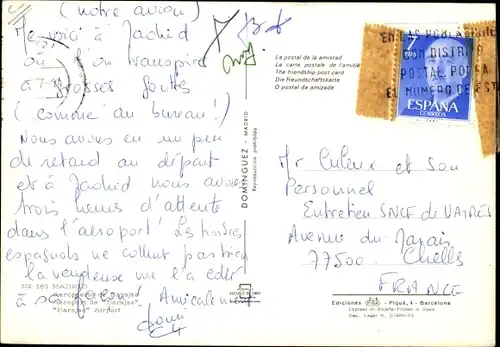 (notre avion)
Me voici à Madrid
où l'on transpire
à grosses gouttes
(comme au bureau!)
Nous avons eu un peu
de retard au départ
et à Madrid nous avions
trois heures d'attente
dans l'aéroport! Les timbres
espagnols ne collent pas bien
la vendeuse me l'a collé
à sa façon! Amicalement
Nº 189 MADRID
Aeropuerto de Barajas
"Barajas" Airport
DOMINGUEZ - MADRID
Reproducción prohibida
La postal de la amistad
La carte postale de l'amitié
The friendship post card
Die Freundschaftskarte
O postal de amizade
7
PTA
CON DISTRITO
POSTAL, PONGA
EL NUMERO DE ESTE
ESPAÑA
CORREOS
Mr Culeux et son
Personnel
Entretien SNCF de VAIRES
Avenue du Marais
77500 Chelles
FRANCE
Ediciones
Piqué, 4 - Barcelona